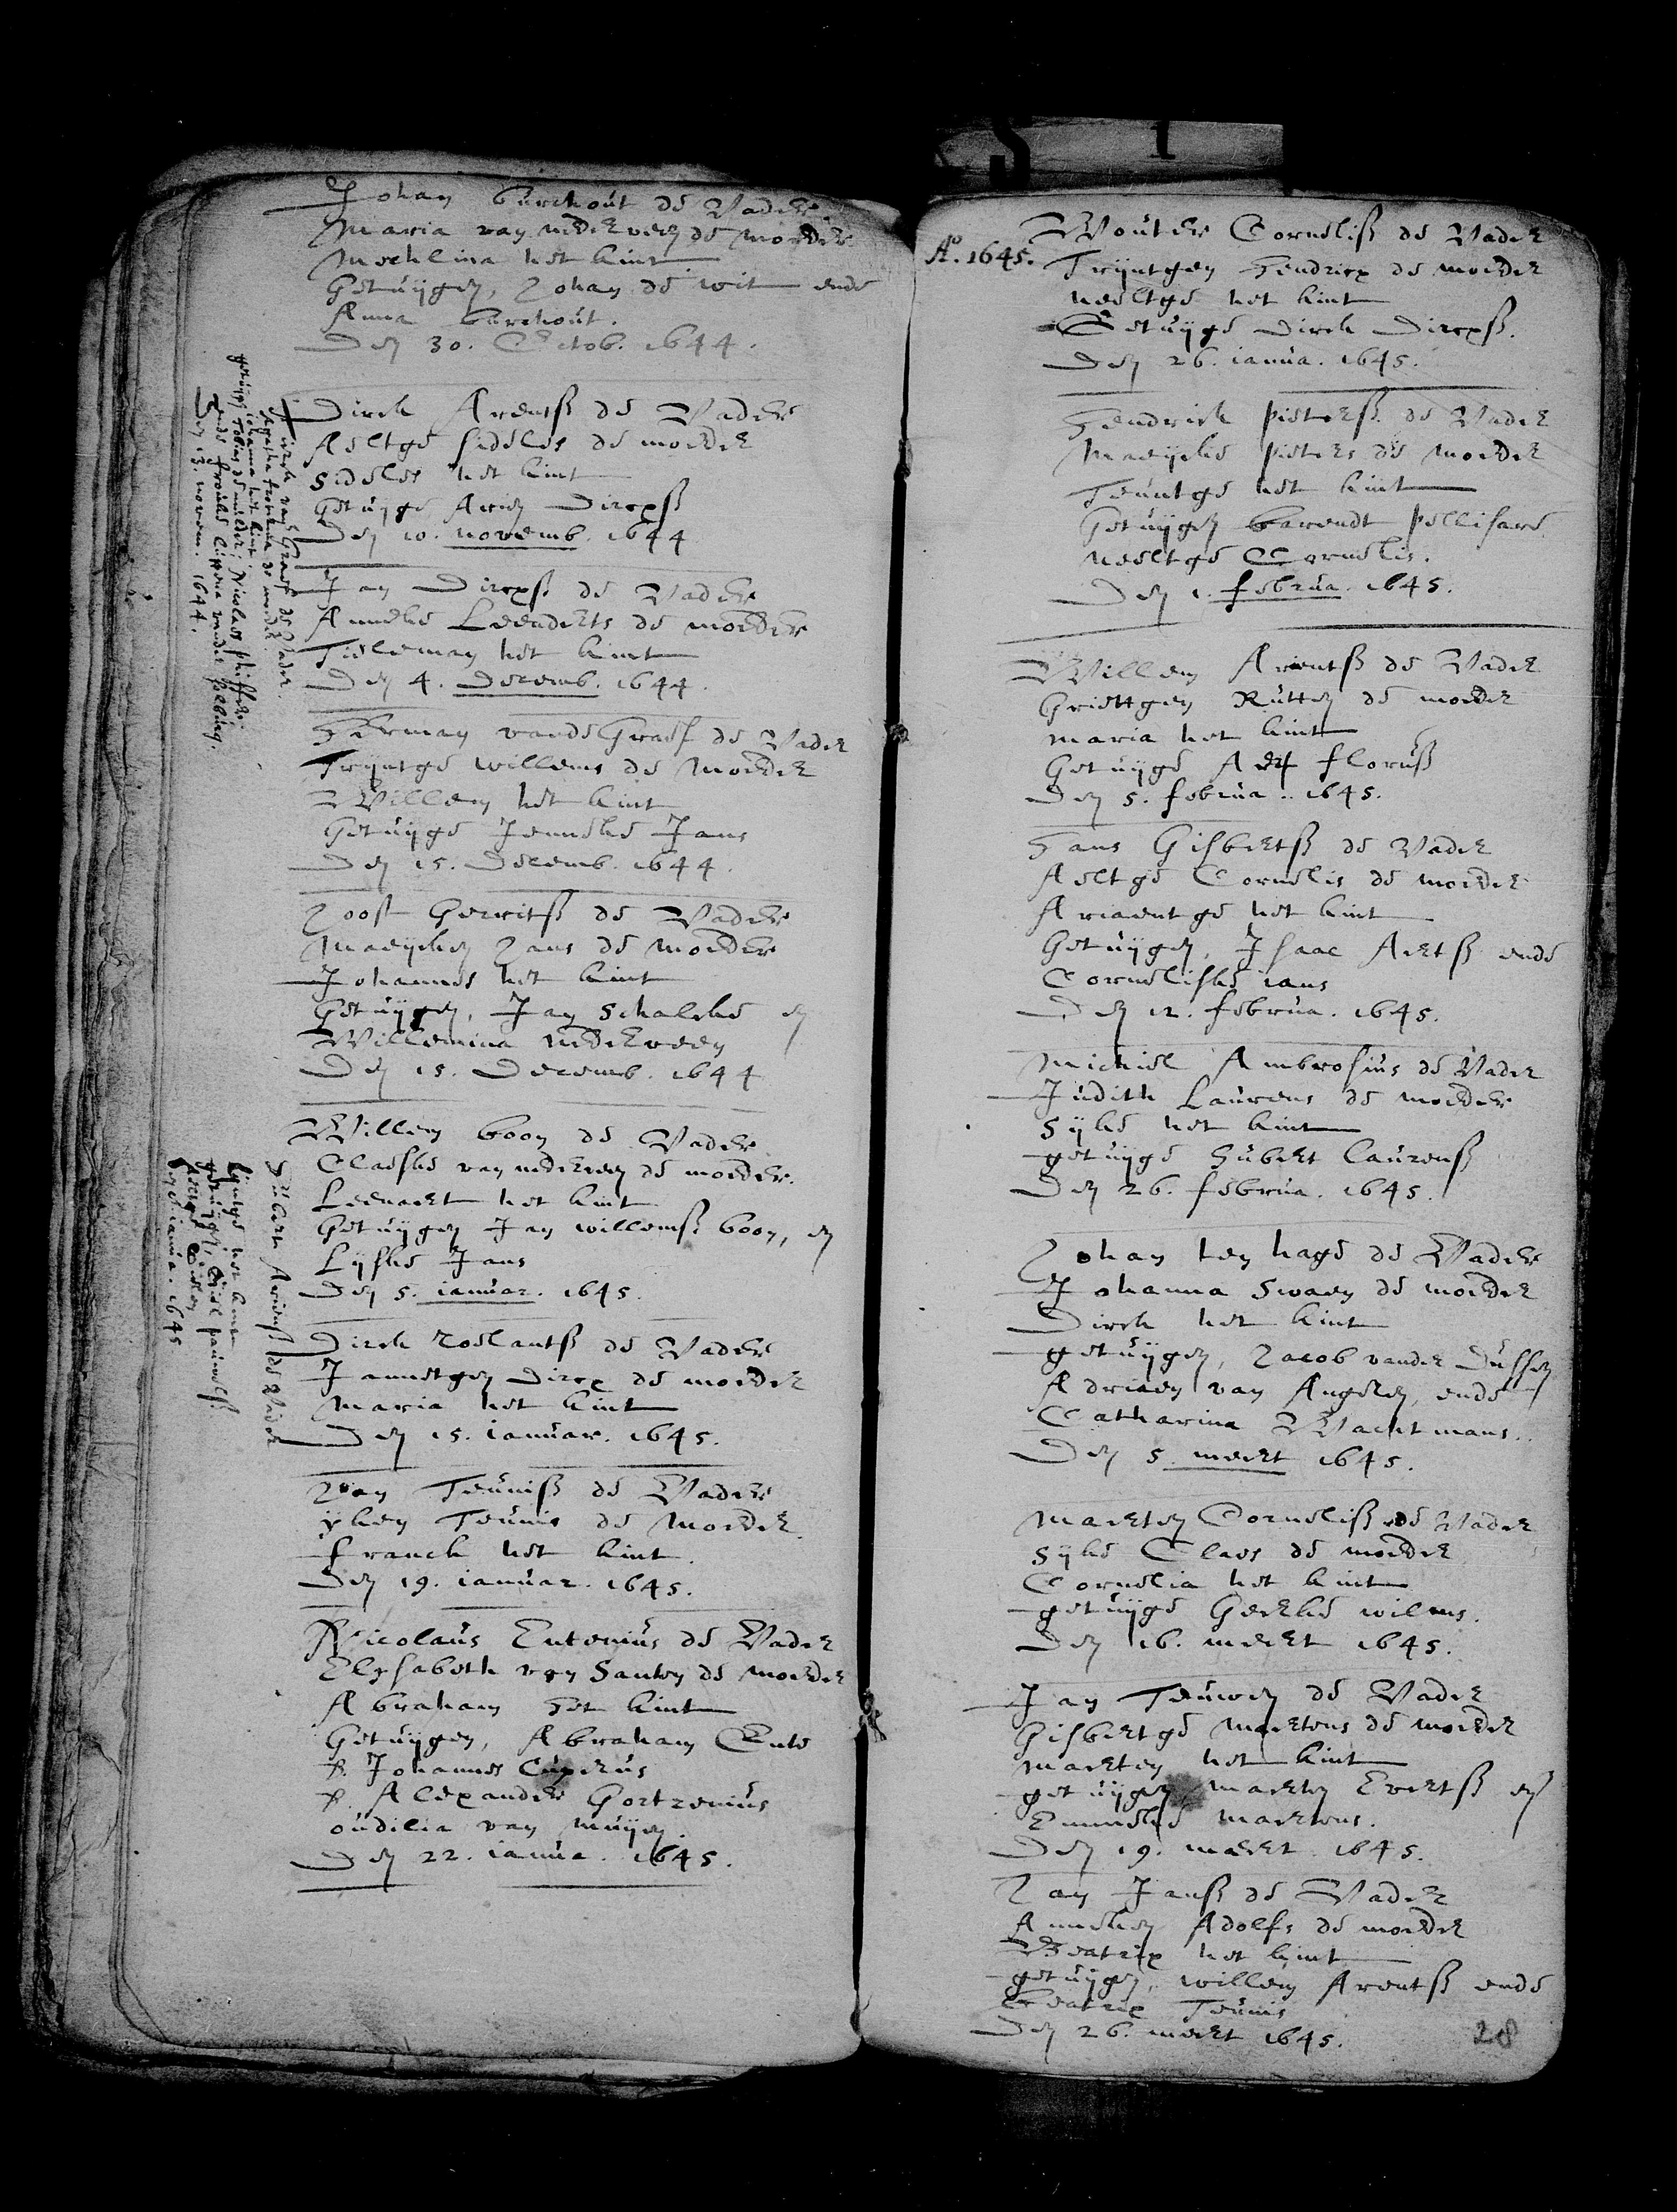 Johan berckout de Vader
Maria van nederveen de moeder
Mechlina het kint
Getuijgen, Johan de wit ende
Anna berckout.
Den 30. Octob. 1644.
Dirck Arentß de Vader
Aeltge sideles de moeder
Sideles het kint
Getuijge Arien Dircxß
Den 10. novemb. 1644
Dirck vande Graef de Vader.
Johanna het kint
Den 13. novem. 1644.
Jan Dircxß de Vader
Anneke Leenderts de moeder
Tieleman het kint
Den 4. Decemb. 1644.
Herman vande Graef de Vader
Tryntge willems de Moeder
Willem het kint
Getuijge Jenneke Jans
Den 15. Decemb. 1644.
Joost Gerritß de Vader
Maeijken Jans de Moeder
Johannes het kint
Getuijgen, Jan Schalcke en
Willemina nederveen
Den 15. Decemb. 1644
Willem boon de Vader
Claeske van nederveen de moeder.
Leenaert het kint
Getuijgen Jan willemß boon, en
Lyske Jans
Den 5. ianuar. 1645.
Hubert Arienß de Vader
het kint
ianua. 1645
Dirck Roelantß de Vader
Jannetgen Dircx de moeder
Maria het kint
Den 15. ianuar. 1645.
Jan Teunisß de Vader
yken Teunis de Moeder
Franck het kint.
Den 19. ianuar. 1645.
Nicolaus Entenius de Vader
Elysabeth van Santen de moeder
Abraham Het kint
Getuijgen, Abraham Ente
Johannes Cuperus
Alexander Gortzenius
oudilia van Muijen.
Den 22. ianua. 1645.
Aº. 1645.
Wouter Cornelisß de Vader
Tryntgen Hendricx de moeder
neeltge het kint
Getuijge Dirck Dircxß.
Den 26. ianua. 1645.
Hendrick pieterß. de Vader
Maeijcke pieters de Moeder
Teuntge het kint
Getuijgen barendt pellisare
neeltge Cornelis.
Den 1. februa. 1645.
Willem Arentß de Vader
Griettgen Rutten de moeder
maria het kint
Getuijge Aert florusß
Den 5. februa. 1645.
Hans Gisbertß de Vader
Aeltge Cornelis de moeder
Ariaentge het kint
Getuijgen, Isaac Aertß ende
Corneliske ians
Den 12. februa. 1645.
Michiel Ambrosius de Vader
Judith Laurens de moeder
Syke het kint
getuijge Hubert laurensß
Den 26. februa. 1645.
Johan ten hage de Vader
Johanna Swaen de moeder
Dirck het kint
getuijgen, Jacob vander Dussen
Adriaen van Angeren, ende
Catharina Wachtmans.
Den 5 meert 1645.
Maerten Cornelisß de Vader
Syke Claes de moeder
Cornelia het kint
getuijge Geerke wilms.
Den 16. meert 1645.
Jan Teuwen de Vader
Gisbertge Maertens de moeder
Maerten het kint
getuijgen, Maerten Evertß en
Enneke Maertens.
Den 19. meert. 1645.
Jan Jansß de Vader
Anneken Adolfs de moeder
Beatrix het kint
getuijgen, willem Arentß ende
Beatrix Teunis
Den 26. meert 1645.
28